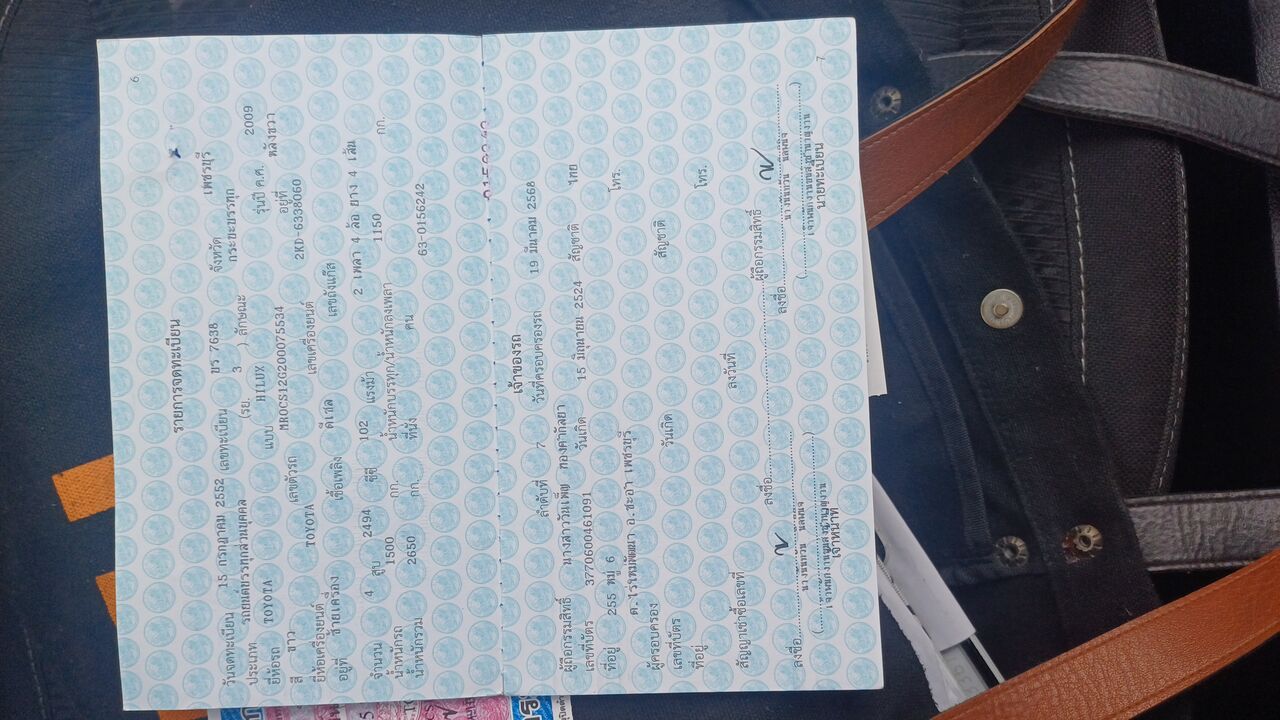 6
รายการจดทะเบียน
วันจดทะเบียน 15 กรกฎาคม 2552 เลขทะเบียน ขร 7638 จังหวัด เพชรบุรี
ประเภท รถยนต์บรรทุกส่วนบุคคล (รย. 3 ) ลักษณะ กระบะบรรทุก
ยี่ห้อรถ TOYOTA แบบ HILUX รุ่นปี ค.ศ. 2009
สี ขาว เลขตัวรถ MROCS12G200075534 อยู่ที่ หลังขวา
ยี่ห้อเครื่องยนต์ TOYOTA เลขเครื่องยนต์ 2KD-6338060
อยู่ที่ ซ้ายเครื่อง เชื้อเพลิง ดีเซล เลขถังแก๊ส
จำนวน 4 สูบ 2494 ซีซี 102 แรงม้า 2 เพลา 4 ล้อ ยาง 4 เส้น
น้ำหนักรถ 1500 กก. น้ำหนักบรรทุก/น้ำหนักลงเพลา 1150 กก.
น้ำหนักรวม 2650 กก. ที่นั่ง คน 63-0156242
เจ้าของรถ
ลำดับที่ 7 วันที่ครอบครองรถ 19 มีนาคม 2568
ผู้ถือกรรมสิทธิ์ นางสาววันเพ็ญ ทองคำกัลยา
เลขที่บัตร 3770600461091 วันเกิด 15 มิถุนายน 2524 สัญชาติ ไทย
ที่อยู่ 255 หมู่ 6 โทร.
ต.ไร่ใหม่พัฒนา อ.ชะอำ เพชรบุรี
ผู้ครอบครอง
เลขที่บัตร วันเกิด สัญชาติ
ที่อยู่ โทร.
สัญญาเช่าซื้อเลขที่ ลงวันที่ ผู้ถือกรรมสิทธิ์
ลงชื่อ ลงชื่อ ลงชื่อ
เจ้าหน้าที่ นายทะเบียน
7